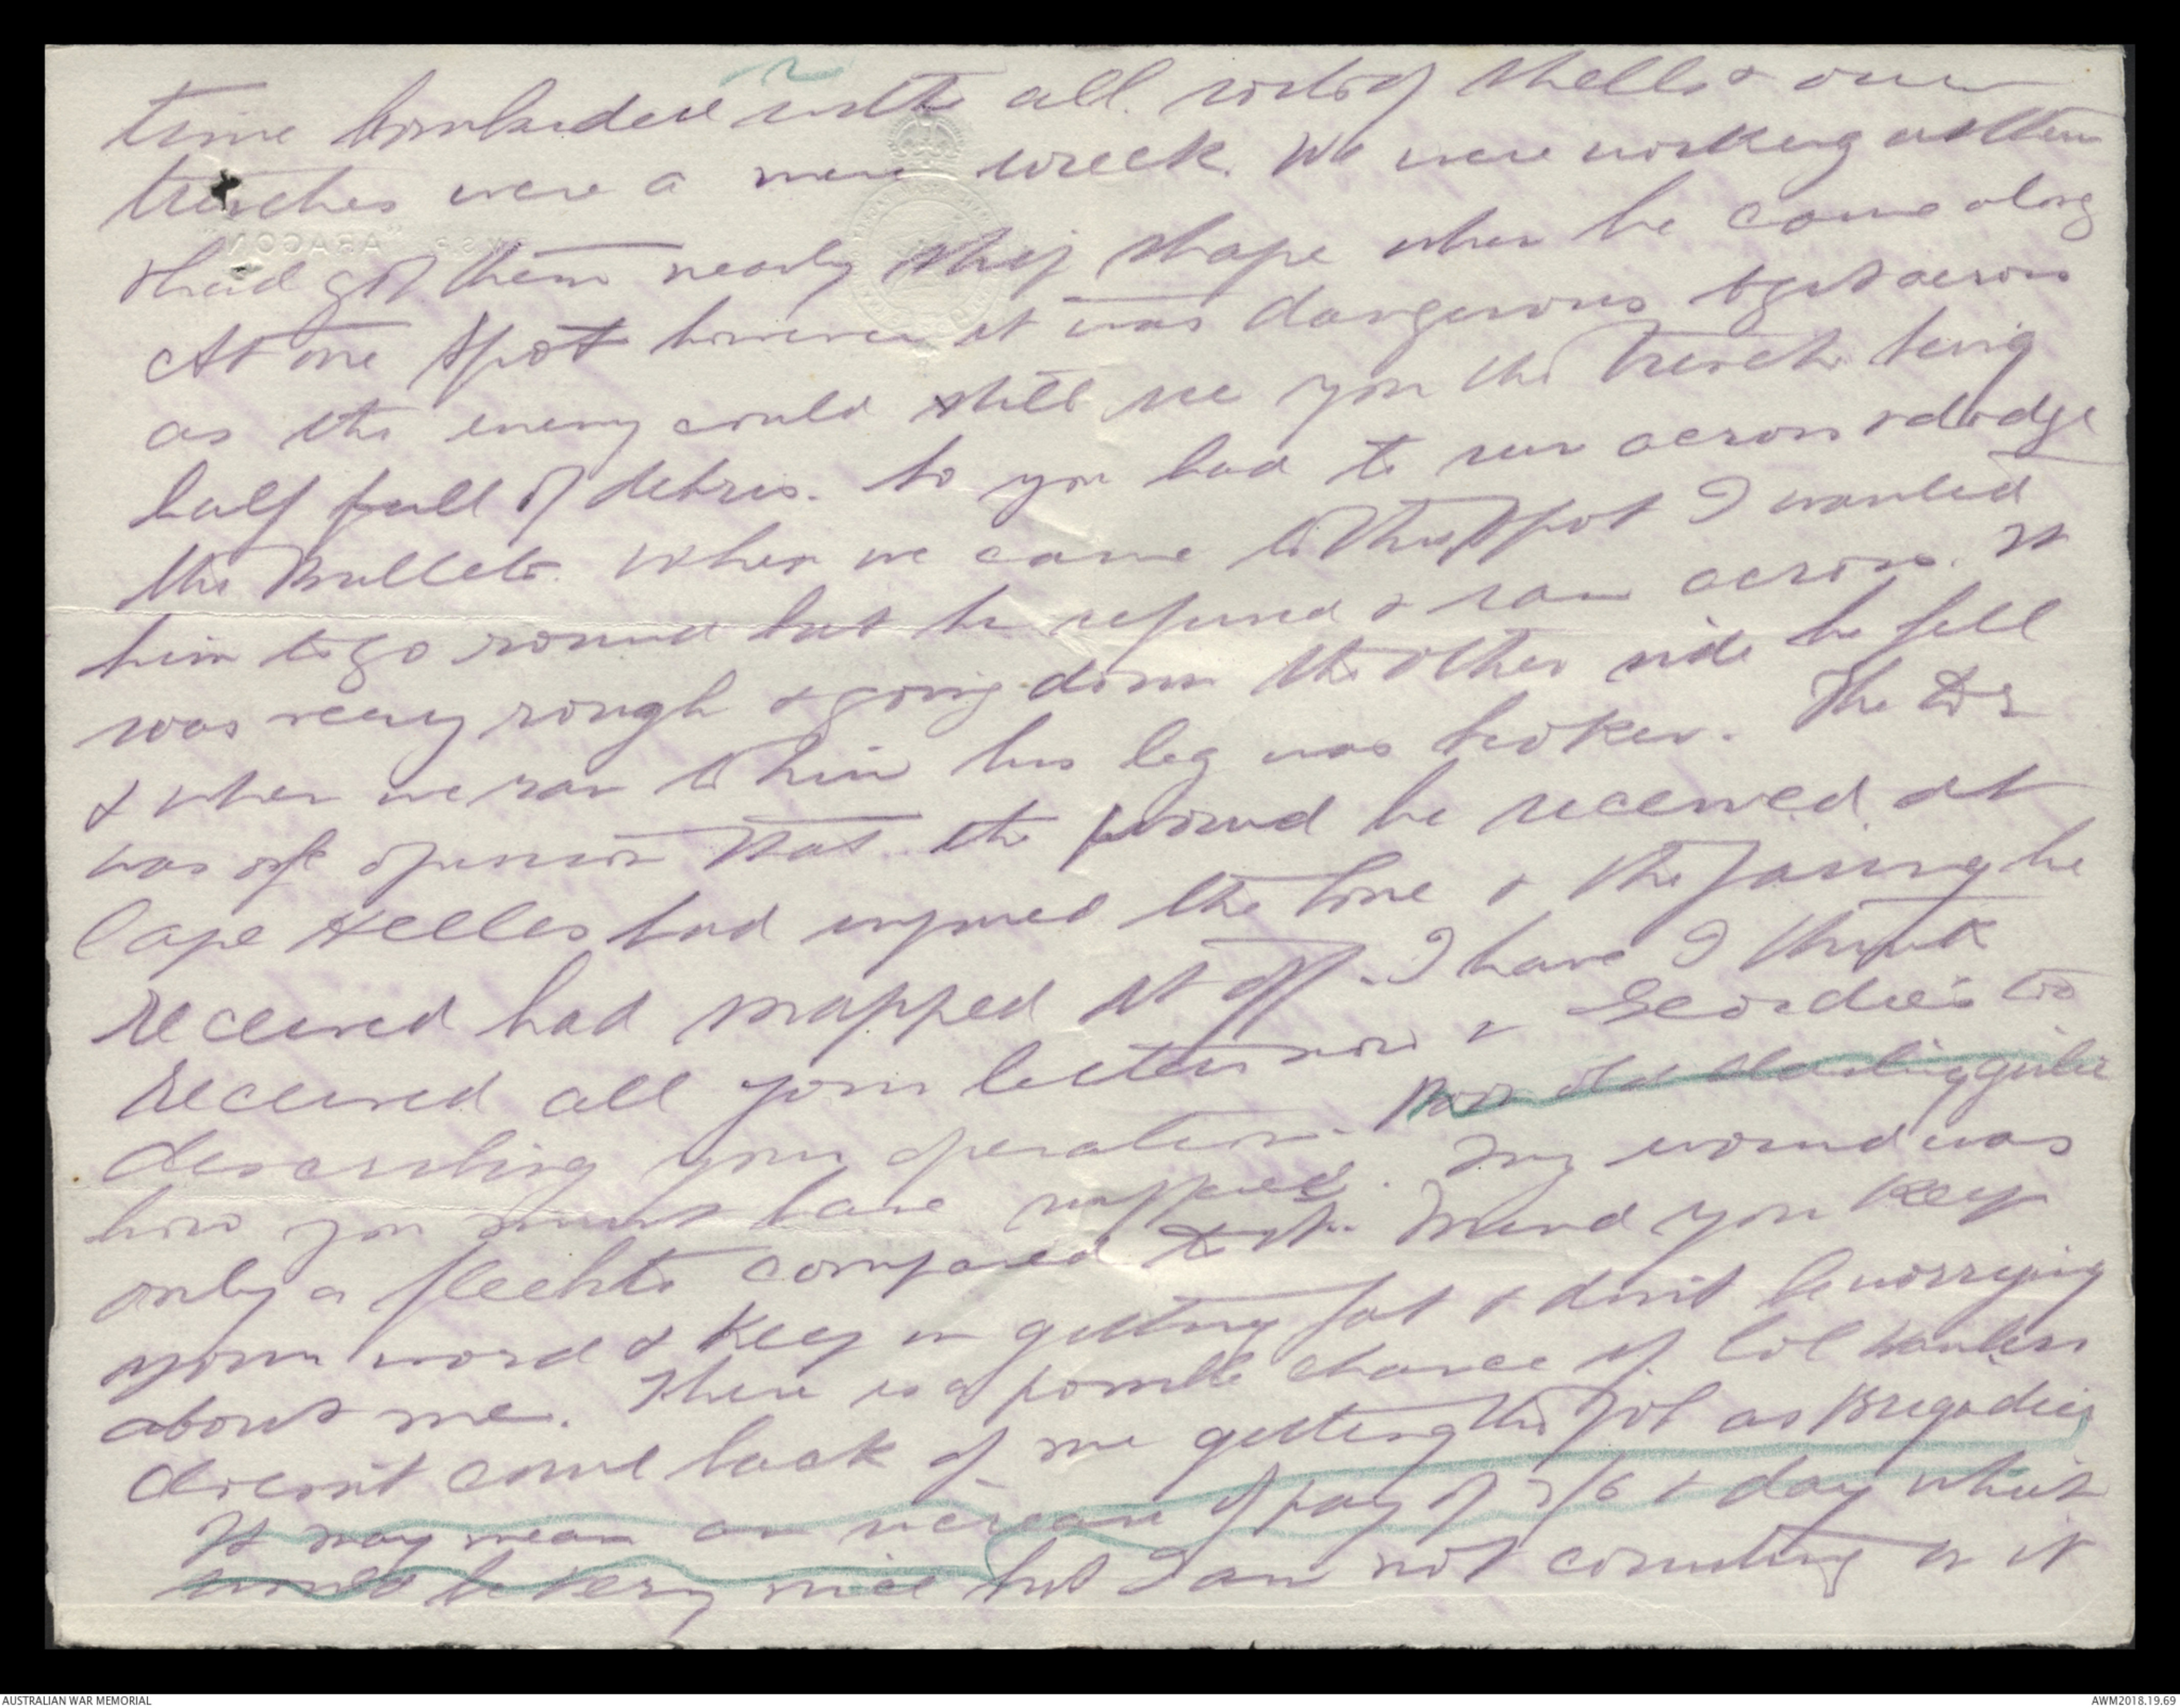 time bombarded with all sorts of shells & our
trenches were a mere wreck. We were working at them
& had got them nearly ship shape when he came along
At one spot however it was dangerous to get across
as the enemy could still see you the trench being
half full of debris. So you had to run across & dodge
the Bullets. When we came to this spot I wanted
him to go round but he refused & ran across. It
was very rough & going down the other side he fell
& when we ran to him his leg was broken. The Dr
was of opinion that the wound he received at
Cape Helles had injured the bone & the jarring he
received had snapped it off. I have I think
received all your letters now & Geordie's too
describing your operation. Poor old darling girlie
how you must have suffered. My wound was
only a compared to it. Mind you keep
your word & keep on getting fat & don't be worrying
about me. There is a possible chance if Col
doesn't come back of me getting the job as Brigadier
It may mean an increase of pay of 7/6 a day which
would be very nice but I am not counting on it
"ARAGON"
AUSTRALIAN WAR MEMORIAL
AWM2018.19.69